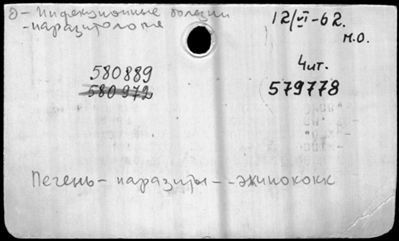 д - Инфекционные болезни
- паразитология
12/VI-62.
М.О.
580889
580972
4 чит.
579778
Печень - паразиты - - эхинококк